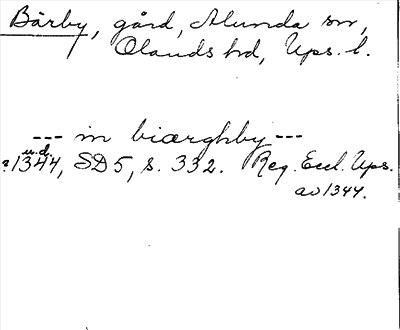 Bärby, gård, Alunda sn,
Olands hd, Ups. l.
--- in biærghby ---
u.d.
?1344, SD 5, s. 332. Reg. Eccl. Ups.
av 1344.